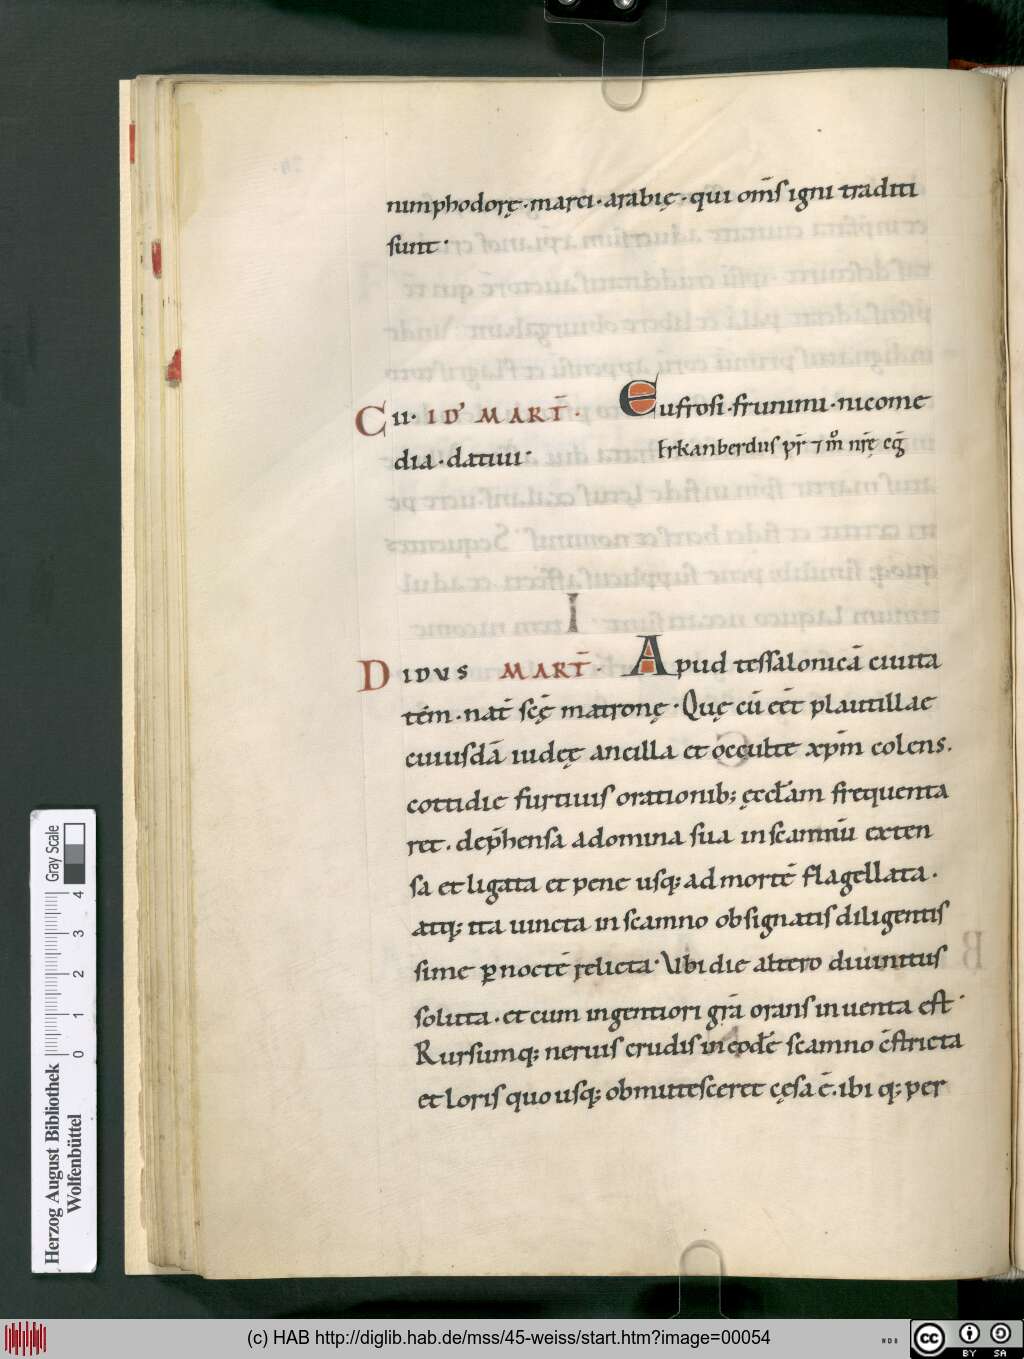 nimphodorę · marci · arabię · qui om̄s igni traditi
sunt ·
C II · ID' MART̄ · Eufrosi · frunimi · nicome
dia · datiui · Erkanberdus pr̄ ⁊ m̊ nr̄ę cḡ
I
D IDVS MART̄ · Apud tessalonicā ciuita
tēm · nat̄ scę̄ matronę · Quę cū eēt plautillae
cuiusdā iudeę ancilla et occulte xp̄m colens.
cottidie furtiuis orationib; ęccl̄am frequenta
ret. dep̄hensa a domina sua in scamnū exten
sa et ligata et pene usq; ad mortē flagellata ·
atq; ita uincta in scamno obsignatis diligentis
sime p̱ noctē relicta · Ubi die altero diuinitus
soluta · et cum ingentiori grā orans inuenta est ·
Rursumq; neruis crudis in eodē scamno c̄stricta
et loris quo usq; obmutesceret cęsa ē. ibi q; per
Gray Scale
0 1 2 3 4
Herzog August Bibliothek
Wolfenbüttel
(c) HAB http://diglib.hab.de/mss/45-weiss/start.htm?image=00054
WDB
cc BY SA